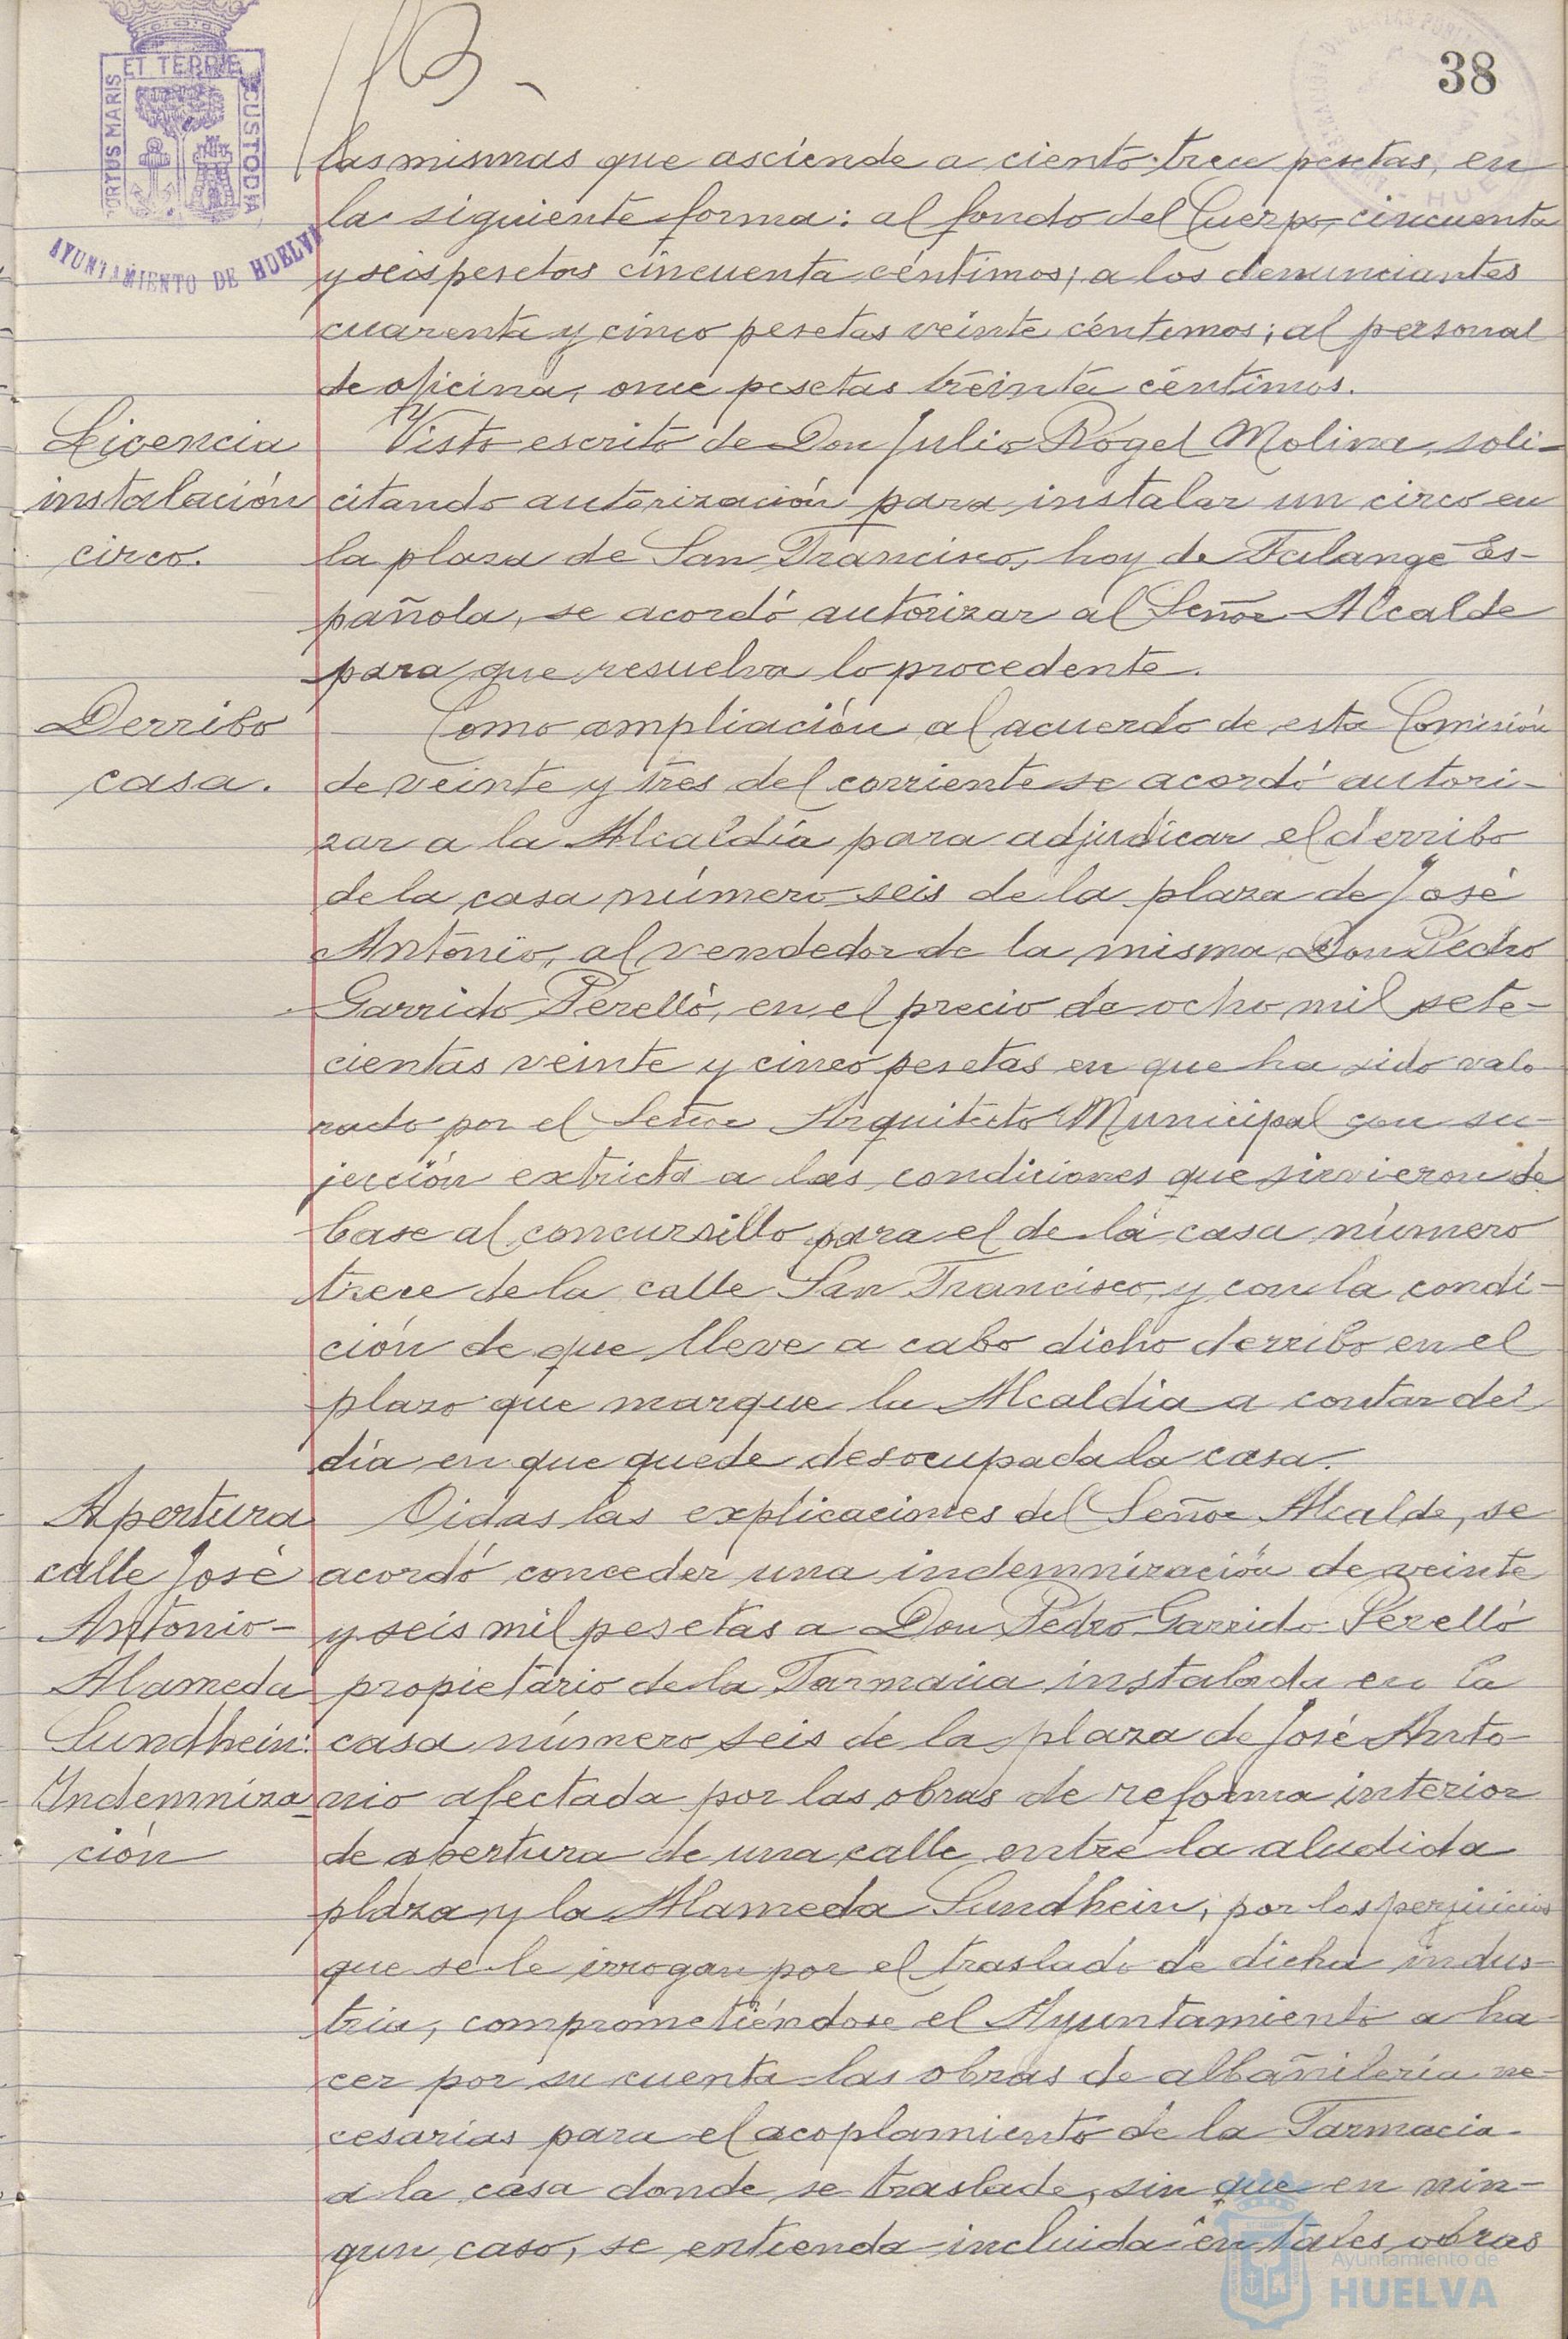 38
ET TERRÆ
PORTUS MARIS
CUSTODIA
AYUNTAMIENTO DE HUELVA
las mismas que asciende a ciento trece pesetas, en
la siguiente forma: al fondo del Cuerpo, cincuenta
y seis pesetas cincuenta céntimos; a los denunciantes
cuarenta y cinco pesetas veinte céntimos; al personal
de oficina, once pesetas treinta céntimos.
Licencia
instalación
circo.
Visto escrito de Don Julio Rogel Molina, soli-
citando autorización para instalar un circo en
la plaza de San Francisco, hoy de Falange Es-
pañola, se acordó autorizar al Señor Alcalde
para que resuelva lo procedente.
Derribo
casa.
Como ampliación al acuerdo de esta Comisión
de veinte y tres del corriente se acordó autori-
zar a la Alcaldía para adjudicar el derribo
de la casa número seis de la plaza de José
Antonio, al vendedor de la misma Don Pedro
Garrido Perelló, en el precio de ocho mil sete-
cientas veinte y cinco pesetas en que ha sido valo
rado por el Señor Arquitecto Municipal con su-
jección extricta a las condiciones que sirvieron de
base al concursillo para el de la casa número
trece de la calle San Francisco, y con la condi-
ción de que lleve a cabo dicho derribo en el
plazo que marque la Alcaldía a contar del
día en que quede desocupada la casa.
Apertura
calle José
Antonio-
Alameda
Sundhein:
Indemniza-
ción
Oidas las explicaciones del Señor Alcalde, se
acordó conceder una indemnización de veinte
y seis mil pesetas a Don Pedro Garrido Perelló
propietario de la Farmacia instalada en la
casa número seis de la plaza de José Anto-
nio afectada por las obras de reforma interior
de apertura de una calle entre la aludida
plaza y la Alameda Sundhein, por los perjuicios
que se le irrogan por el traslado de dicha indus-
tria, comprometiéndose el Ayuntamiento a ha-
cer por su cuenta las obras de albañilería ne-
cesarias para el acoplamiento de la Farmacia
a la casa donde se traslade, sin que en nin-
gun caso, se entienda incluida en tales obras
Ayuntamiento de
HUELVA